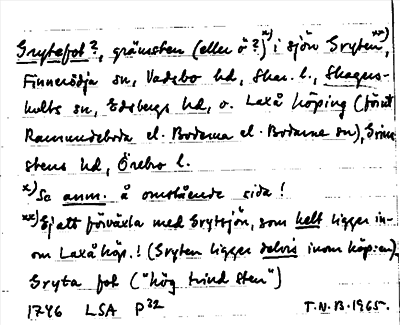 Grytefot?, gränssten (eller ö?)x) i sjön Grytenxx),
Finnerödja sn, Vadsbo hd, Skar. l., Skagers-
hults sn, Edsbergs hd, o. Laxå köping (förut
Ramundeboda el. Bodarna el. Bodarne sn), Grim-
stens hd, Örebro l.
x) Se anm. å omstående sida!
xx) Ej att förväxla med Grytsjön, som helt ligger in-
om Laxå köp.! (Gryten ligger delvis inom köp:en).
Gryta fot ("hög trind sten")
1746 LSA P32 T.N.B. 1965.